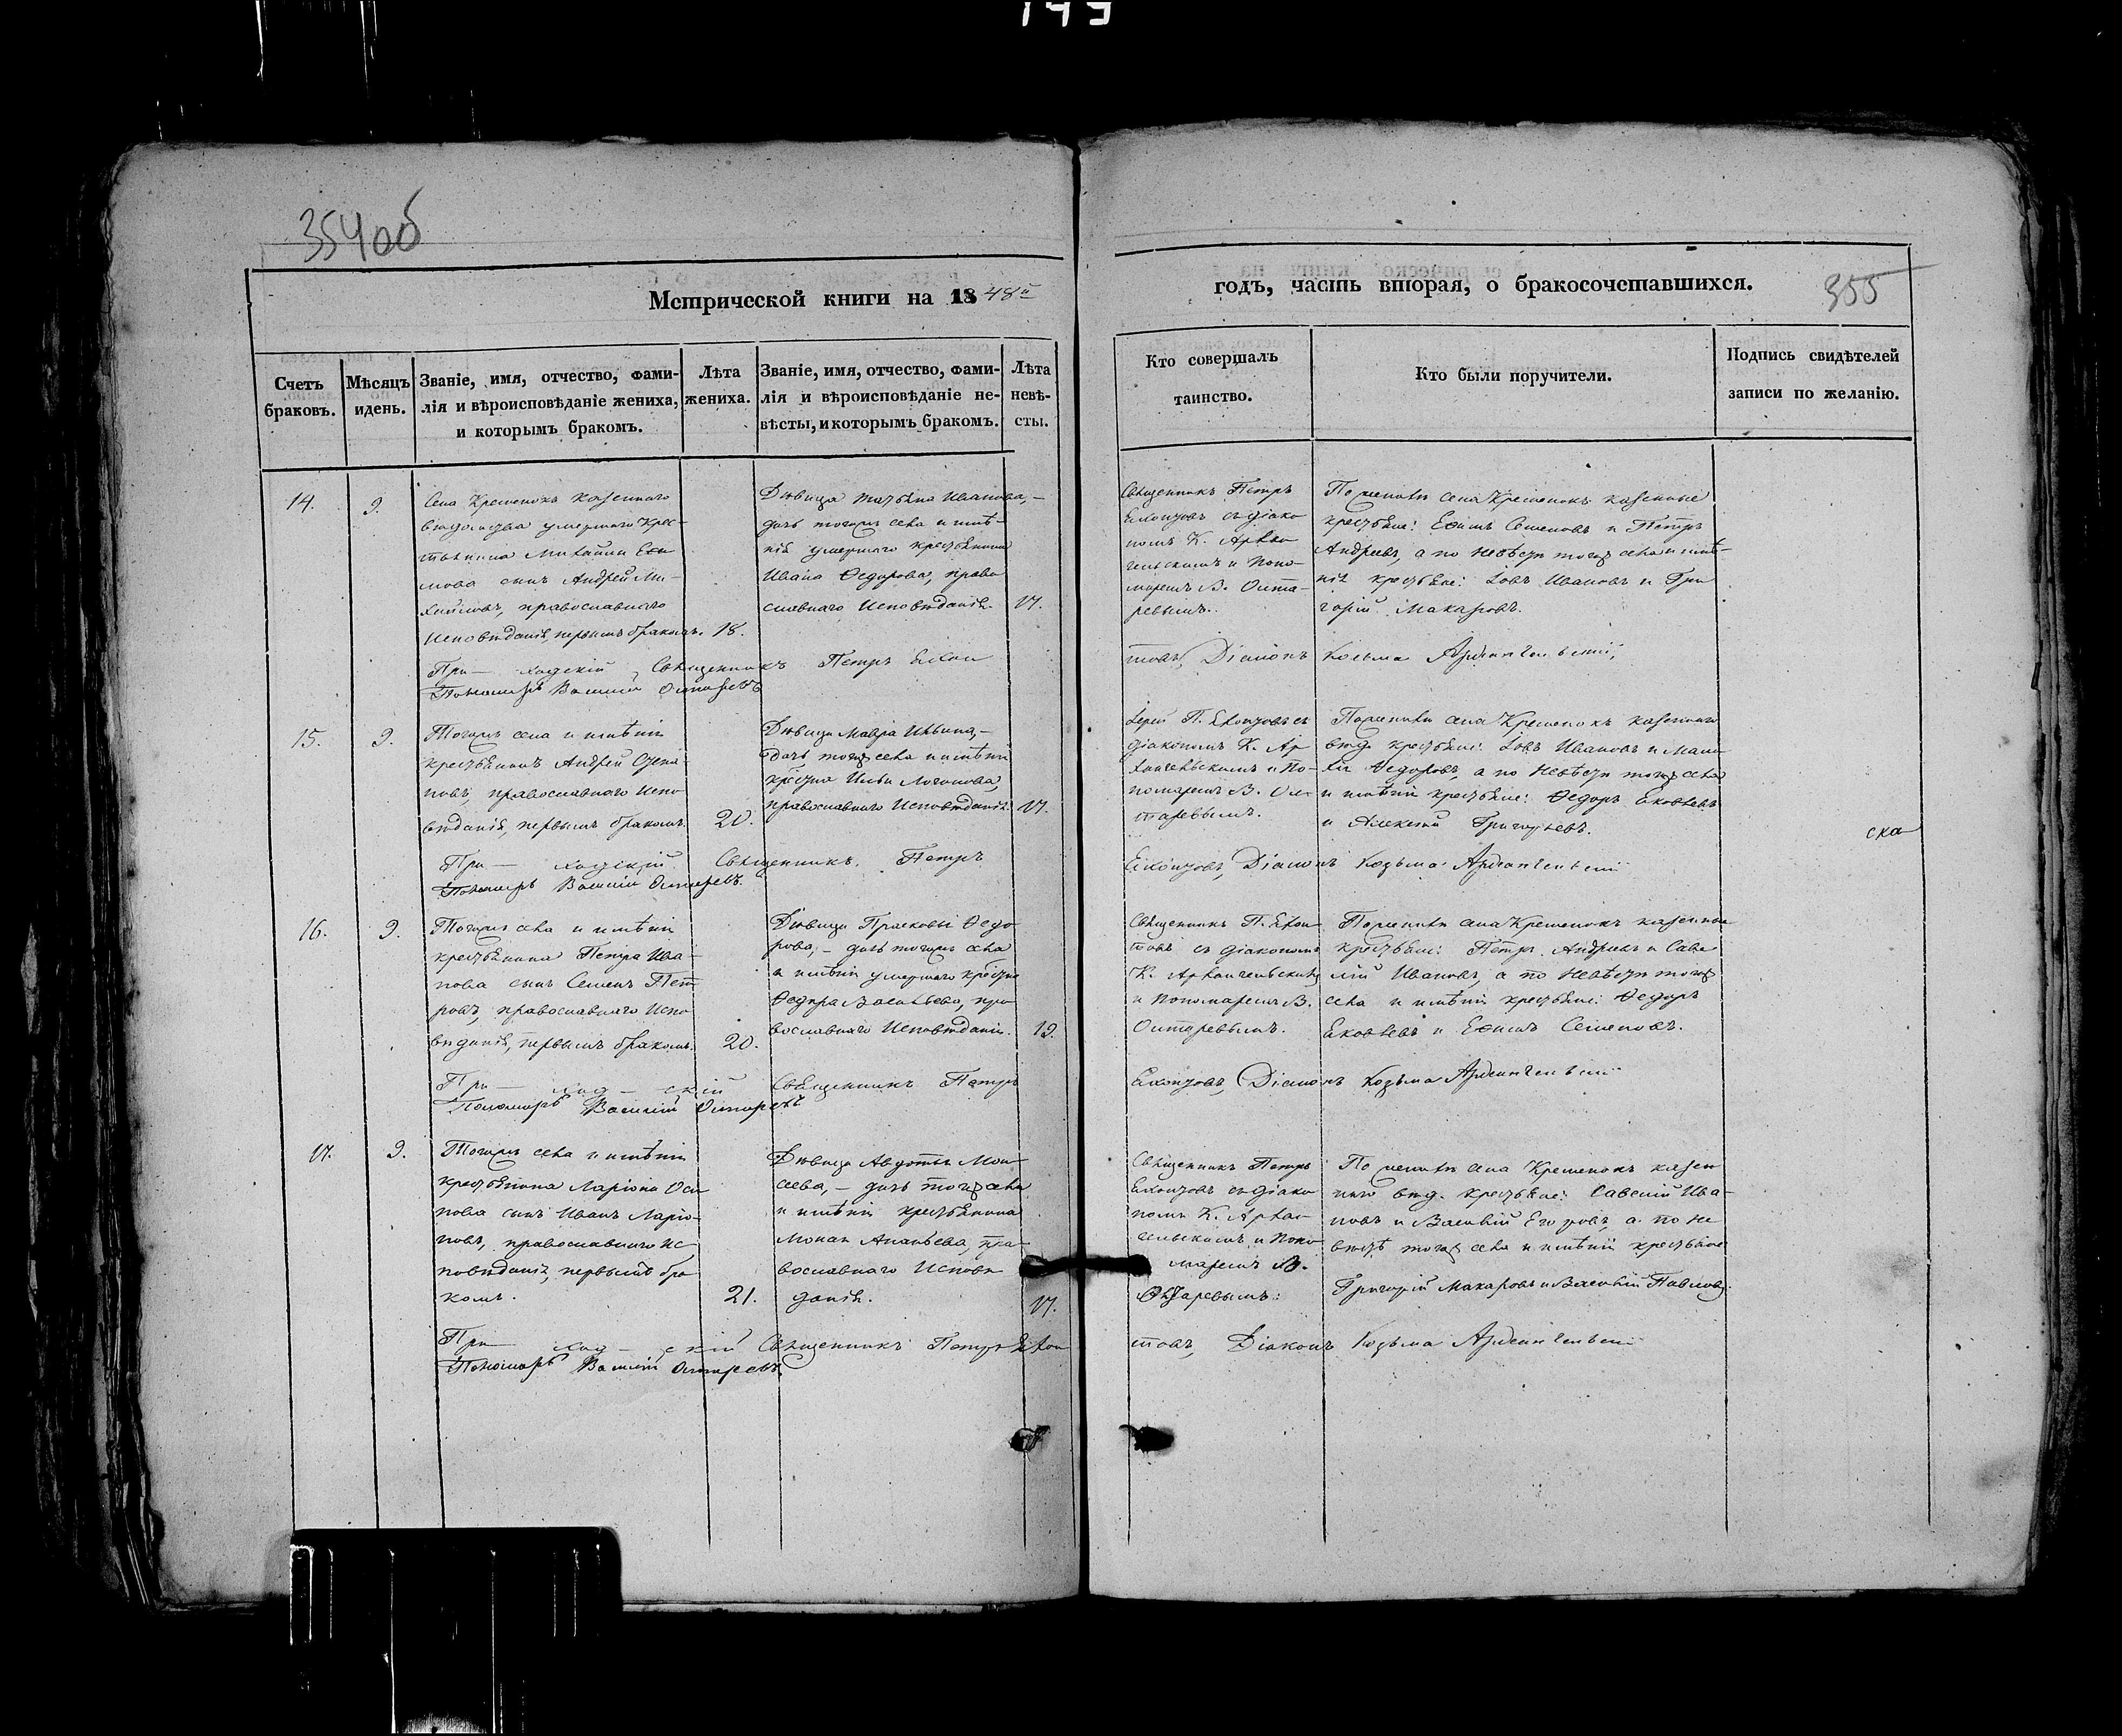 149
354об
Метрической книги на 1848й
годъ, часть вторая, о бракосочетавшихся.
355
Счетъ браковъ.
Мѣсяцъ идень.
Званіе, имя, отчество, фами-
лія и вѣроисповѣданіе жениха,
и которымъ бракомъ.
Лѣта
жениха.
Званіе, имя, отчество, фами-
лія и вѣроисповѣданіе не-
вѣсты, и которымъ бракомъ.
Лѣта
невѣ-
сты.
Кто совершалъ
таинство.
Кто были поручители.
Подпись свидѣтелей
записи по желанію.
14.
9.
Села Кременокъ казеннаго
вѣдомства умершаго Крес-
тьянина Михаила Ефи
мова сынъ Андрей Ми-
хайловъ, православнаго
Исповѣданія, первымъ бракомъ.
18.
Дѣвица Татьяна Иванова,-
дочь тогожъ села и имѣ-
нія умершаго крестьянина
Ивана Ѳедорова, право
славнаго Исповѣданія.
17.
Священникъ Петръ
съ діако
номъ К. Архан
гельскимъ и поно-
маремъ В.
По женихѣ села Кременокъ казенные
крестьяне: Ефимъ Семеновъ и Петръ
Андреевъ, а по невѣстѣ тогожъ села и имѣ-
нія крестьяне: Іовъ Ивановъ и Гри
горій Макаровъ.
При- ходскій Священникъ Петръ
товъ, Діаконъ Козьма Архангельскій,
Пономарь Василій
15.
9.
Тогожъ села и имѣнія
крестьянинъ Андрей Степа-
новъ, православнаго Испо
вѣданія, первымъ бракомъ.
20.
Дѣвица Мавра Ильина,-
дочь тогожъ села и имѣнія
крестьна Ильи Логинова,
православнаго Исповѣданія.
17.
Іерей П. съ
діакономъ К. Ар
хангельскимъ и По-
номаремъ В.
По женихѣ села Кременокъ казеннаго
вѣд. крестьяне: Іовъ Ивановъ и
Ѳедоровъ, а по невѣстѣ тогожъ села
и имѣнія крестьяне: Ѳедоръ Яковлевъ
и Алексѣй Григорьевъ.
ска
При- ходскій Священникъ Петръ
Діаконъ Козьма Архангельскій
Пономарь Василій
16.
9.
Тогожъ села и имѣнія
крестьянина Петра Ива-
нова сынъ Семенъ Пет
ровъ, православнаго Испо
вѣданія, первымъ бракомъ.
20.
Дѣвица Прасковья Ѳедо
рова,- дочь тогожъ села
и имѣнія умершаго крестьна
Ѳедора Васильева, пра
вославнаго Исповѣданія.
19.
Священникъ П.
товъ съ діакономъ
К. Архангельскимъ
и Пономаремъ В.
По женихѣ села Кременокъ казенные
крестьяне: Петръ Андреевъ и Саве
лій Ивановъ, а по невѣстѣ тогожъ
села и имѣнія крестьяне: Ѳедоръ
Яковлевъ и Ефимъ Семеновъ.
При- ход- скій Священникъ Петръ
Діаконъ Козьма Архангельскій
Пономарь Василій
17.
9.
Тогожъ села и имѣнія
крестьянина Ларіона Оси
пова сынъ Иванъ Ларіо-
новъ, православнаго Ис
повѣданія, первымъ бра
комъ.
21.
Дѣвица Авдотья Мои
сеева,- дочь тогожъ села
и имѣнія крестьянина
Ананьева, пра-
вославнаго Исповѣ
данія.
17.
Священникъ Петръ
съ діако
номъ К. Архан-
гельскимъ и поно
маремъ В.
По женихѣ села Кременокъ казен
наго вѣд. крестьяне: Савелій Ива-
новъ и Василій Егоровъ, а по не
вѣстѣ тогожъ села и имѣнія крестьяне
Григорій Макаровъ и Василій Павловъ.
При- ход- скій Священникъ Петръ
товъ, Діаконъ Козьма Архангельскій
Пономарь Василій